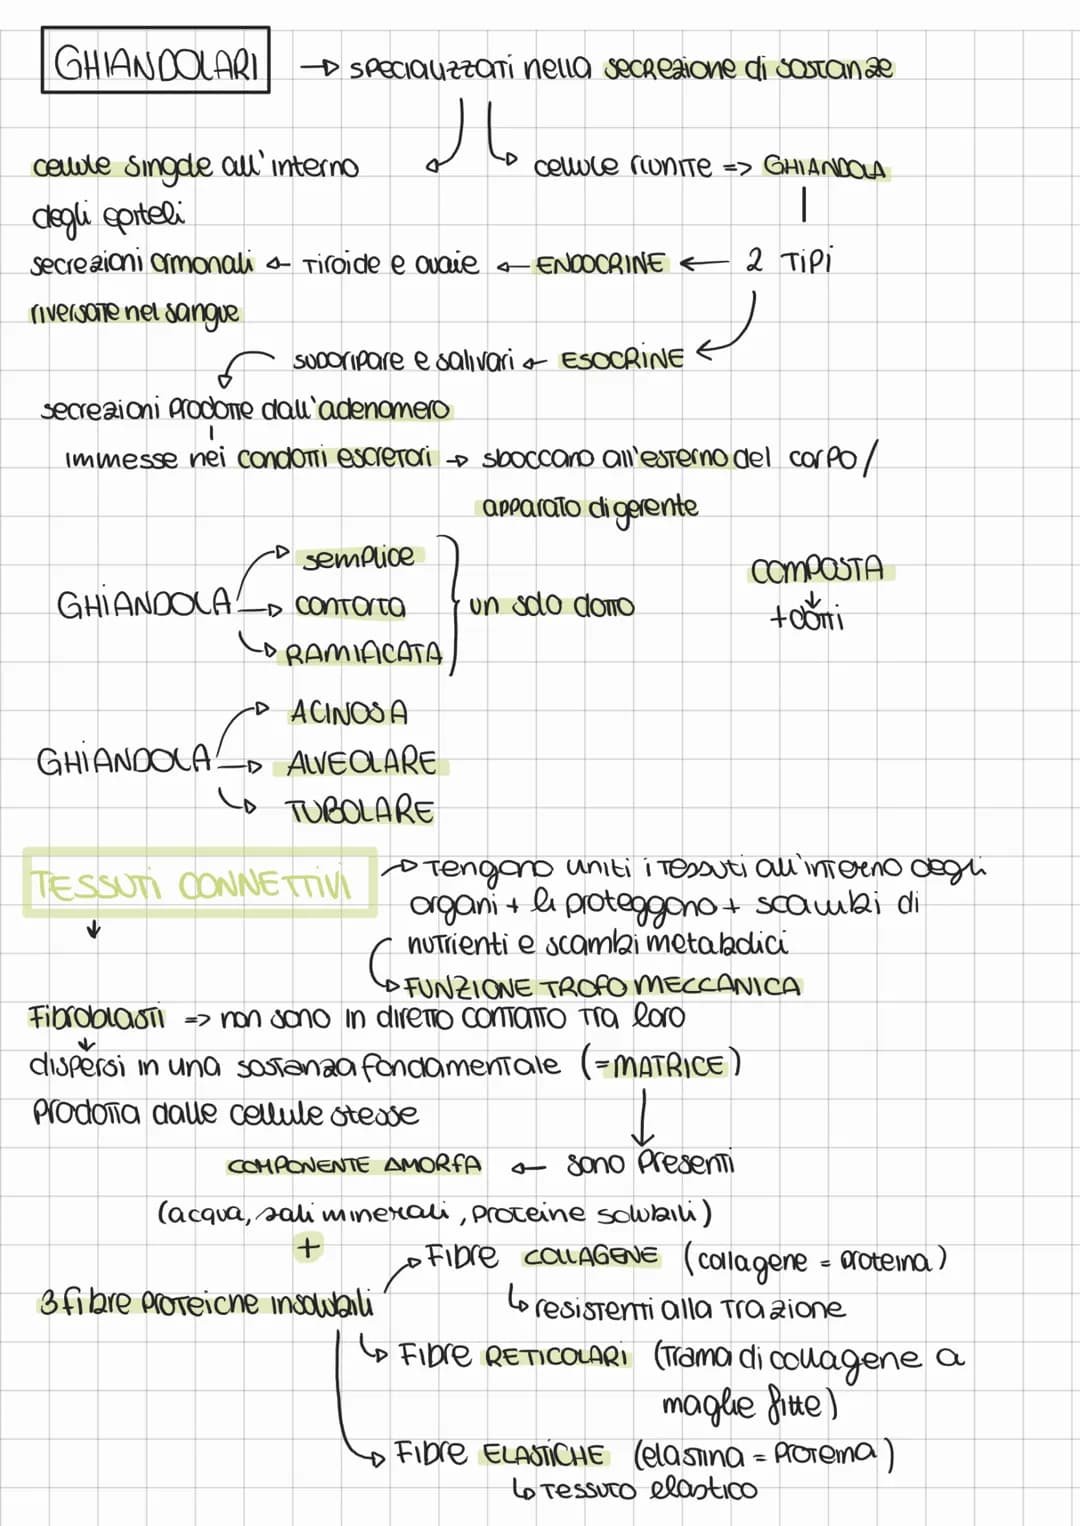 GHIANDOLARI → specializzati nella secrezione di sostanze
cellule singole all'interno
cellule riunite => GHIANDOLA
degli epiteli
secrezioni ormonali ← tiroide e ovaie ← ENDOCRINE ← 2 TIPI
riversate nel sangue
sudoripare e salivari ← ESOCRINE
secrezioni prodotte dall'adenomero
immesse nei condotti escretori → sboccano all'esterno del corpo/
apparato digerente
semplice
COMPOSTA
GHIANDOLA → contorta } un solo dotto
+dotti
RAMIACATA
ACINOSA
GHIANDOLA → ALVEOLARE
TUBOLARE
TESSUTI CONNETTIVI → Tengono uniti i tessuti all'interno degli
organi + li proteggono + scambi di
nutrienti e scambi metabolici
FUNZIONE TROFO MECCANICA
Fibroblasti => non sono in diretto contatto tra loro
dispersi in una sostanza fondamentale (=MATRICE)
prodotta dalle cellule stesse
COMPONENTE AMORFA ← sono presenti
(acqua, sali minerali, proteine solubili)
+
Fibre COLLAGENE (collagene = proteina)
3 fibre proteiche insolubili
resistenti alla trazione
Fibre RETICOLARI (trama di collagene a
maglie fitte)
Fibre ELASTICHE (elastina = proteina)
tessuto elastico